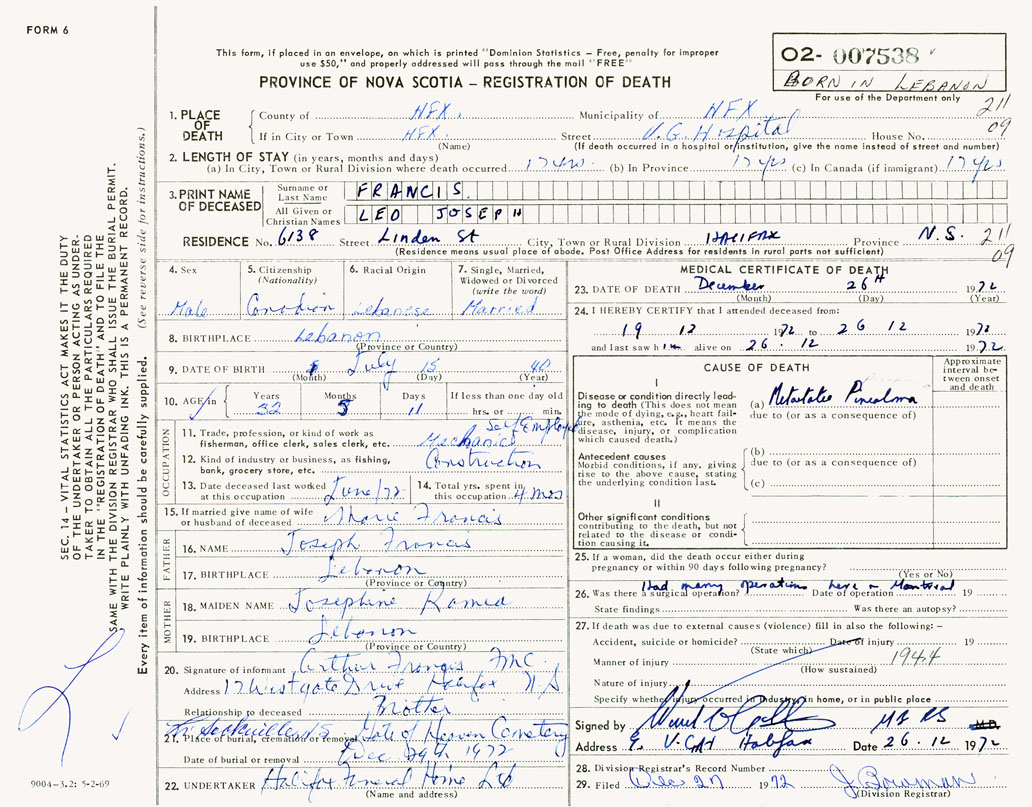 FORM 6
This form, if placed in an envelope, on which is printed "Dominion Statistics – Free, penalty for improper
use $50," and properly addressed will pass through the mail "FREE"
PROVINCE OF NOVA SCOTIA – REGISTRATION OF DEATH
02- 007538
BORN IN LEBANON
For use of the Department only
211
09
1. PLACE OF DEATH
County of HFX. Municipality of HFX
If in City or Town HFX. Street V.G. Hospital House No.
(Name) (If death occurred in a hospital or institution, give the name instead of street and number)
2. LENGTH OF STAY (in years, months and days)
(a) In City, Town or Rural Division where death occurred 17 yrs. (b) In Province 17 yrs (c) In Canada (if immigrant) 17 yrs
3. PRINT NAME OF DECEASED
Surname or Last Name FRANCIS
All Given or Christian Names LEO JOSEPH
RESIDENCE No. 6138 Street Linden St City, Town or Rural Division HALIFAX Province N.S. 211
09
(Residence means usual place of abode. Post Office Address for residents in rural parts not sufficient)
4. Sex
Male
5. Citizenship (Nationality)
Canadian
6. Racial Origin
Lebanese
7. Single, Married, Widowed or Divorced (write the word)
Married
8. BIRTHPLACE Lebanon
(Province or Country)
9. DATE OF BIRTH July 15 40
(Month) (Day) (Year)
10. AGE in Years Months Days If less than one day old
32 5 11 hrs. or min.
OCCUPATION
11. Trade, profession, or kind of work as fisherman, office clerk, sales clerk, etc. Mechanics Self Employed
12. Kind of industry or business, as fishing, bank, grocery store, etc. Construction
13. Date deceased last worked at this occupation June/72
14. Total yrs. spent in this occupation 4 mos
15. If married give name of wife or husband of deceased Marie Francis
FATHER
16. NAME Joseph Francis
17. BIRTHPLACE Lebanon
(Province or Country)
MOTHER
18. MAIDEN NAME Josephine
19. BIRTHPLACE Lebanon
(Province or Country)
20. Signature of informant Arthur Francis
Address 17 Westgate Drive Halifax N.S
Relationship to deceased Brother
21. Place of burial, cremation or removal Gate of Heaven Cemetery Sackville
Date of burial or removal Dec 29th 1972
22. UNDERTAKER Halifax Funeral Home Ltd
(Name and address)
MEDICAL CERTIFICATE OF DEATH
23. DATE OF DEATH December 26th 1972
(Month) (Day) (Year)
24. I HEREBY CERTIFY that I attended deceased from:
19 12 1972 to 26 12 1972
and last saw him alive on 26. 12 1972.
CAUSE OF DEATH
Approximate interval between onset and death
I
Disease or condition directly leading to death (This does not mean the mode of dying, e.g., heart failure, asthenia, etc. It means the disease, injury, or complication which caused death.)
(a) Metastatic Pinealoma
due to (or as a consequence of)
Antecedent causes
Morbid conditions, if any, giving rise to the above cause, stating the underlying condition last.
(b)
due to (or as a consequence of)
(c)
II
Other significant conditions contributing to the death, but not related to the disease or condition causing it.
25. If a woman, did the death occur either during
pregnancy or within 90 days following pregnancy?
(Yes or No)
Had many operations here & Montreal
26. Was there a surgical operation? Date of operation 19
State findings Was there an autopsy?
27. If death was due to external causes (violence) fill in also the following: –
Accident, suicide or homicide? Date of injury 19
(State which)
Manner of injury 1944
(How sustained)
Nature of injury
Specify whether injury occurred in industry, in home, or in public place
Signed by M.D.
Address V.G.H Halifax Date 26.12 1972
28. Division Registrar's Record Number
29. Filed Dec 27 1972 J. Bowman
(Division Registrar)
SEC. 14 – VITAL STATISTICS ACT MAKES IT THE DUTY
OF THE UNDERTAKER OR PERSON ACTING AS UNDER-
TAKER TO OBTAIN ALL THE PARTICULARS REQUIRED
IN THE "REGISTRATION OF DEATH" AND TO FILE THE
SAME WITH THE DIVISION REGISTRAR WHO SHALL ISSUE THE BURIAL PERMIT.
WRITE PLAINLY WITH UNFADING INK. THIS IS A PERMANENT RECORD.
Every item of information should be carefully supplied. (See reverse side for instructions.)
9004–3.2: 5-2-69